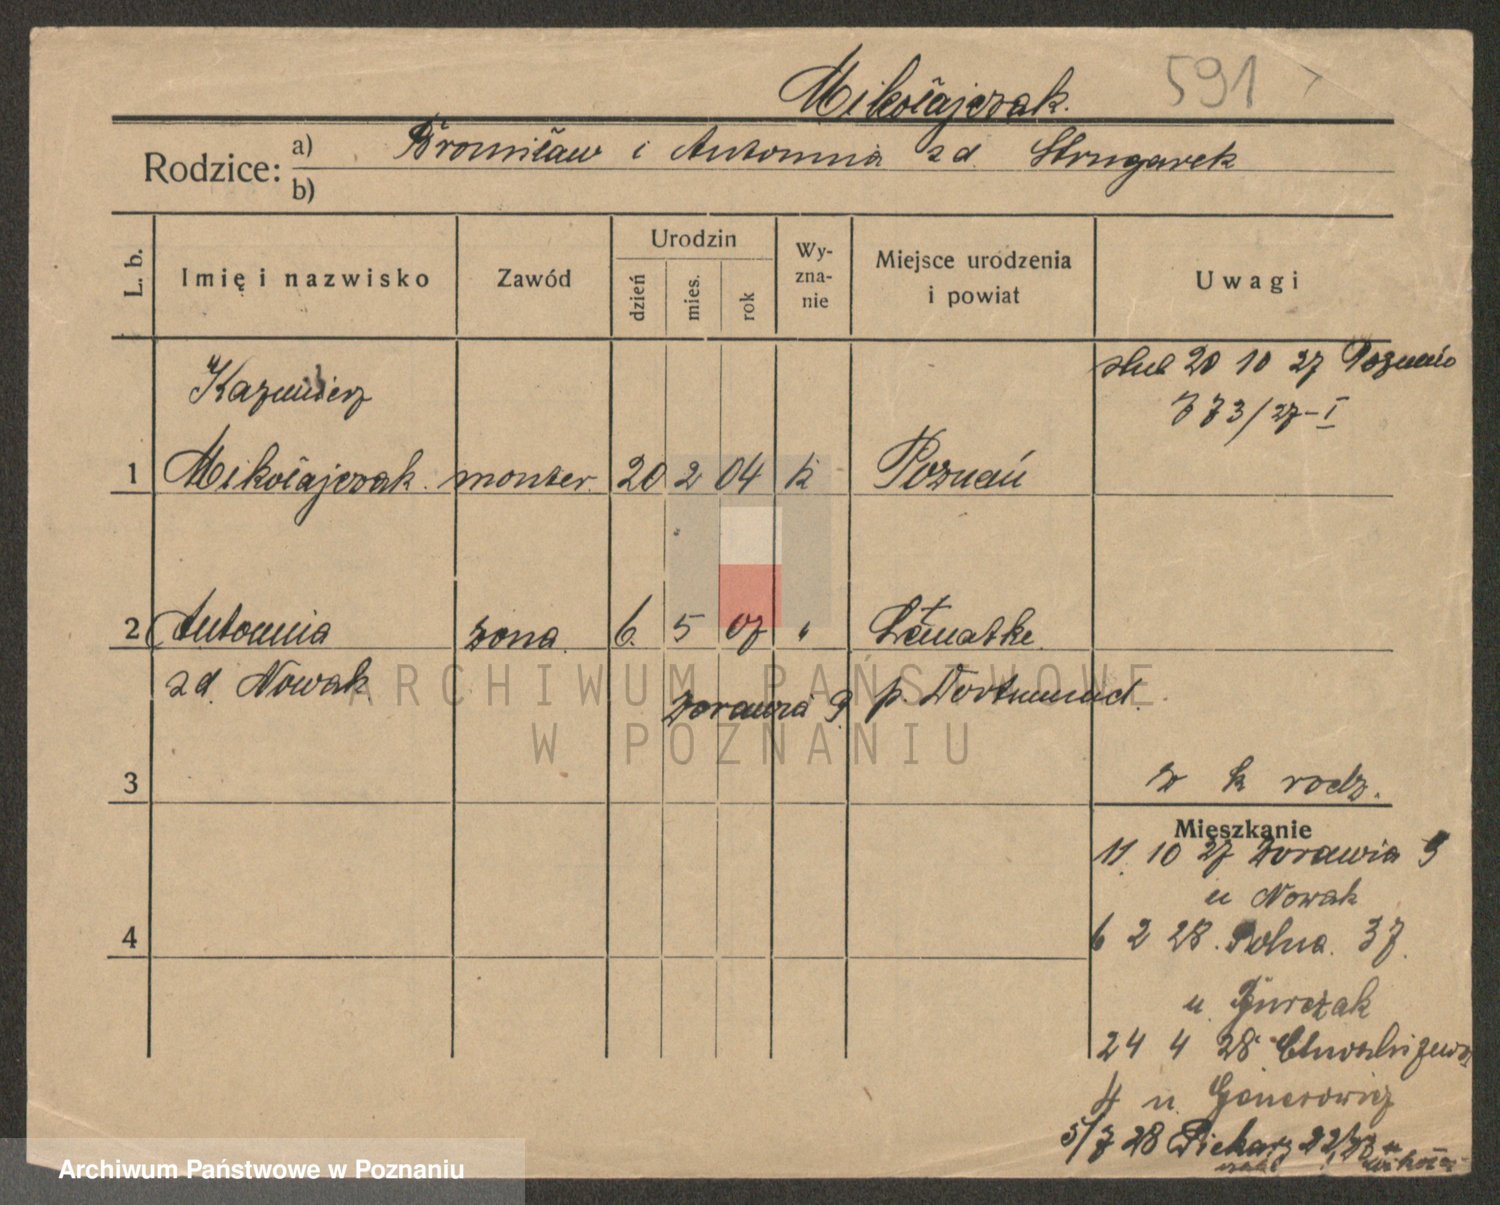 Mikołajczak. 591
Rodzice: a) Bronisław i Antonina z d. Strugarek
b)
L. b. Imię i nazwisko Zawód Urodzin dzień mies. rok Wy-zna-nie Miejsce urodzenia i powiat Uwagi
ślub 20 10 27 Poznań
773/27-I
Kazimierz
1 Mikołajczak. monter. 20 2 04 k Poznań
2 Antonina żona. 6. 5 07 " 
zd. Nowak p. Dortmund.
Żórawia 9
3 z k rodz.
Mieszkanie
11. 10 27 Żorawia 9
u Nowak
4 6 2 28. Polna. 37.
u
24 4 28
4 u.
5/7 28 Piekary 22/23
ARCHIWUM PAŃSTWOWE
W POZNANIU
Archiwum Państwowe w Poznaniu